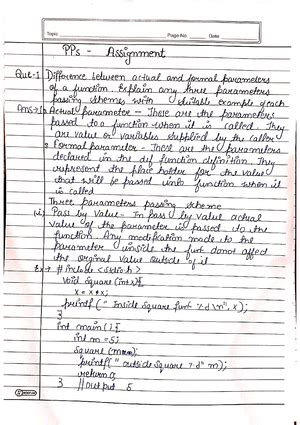 Topic Page No. Date
PPs - Assignment
Que-1 Difference between actual and formal parameters
of a function. Explain any three parameters
passing schemes with suitable example of each
Ans-1 Actual parameter - These are the parameters
passed to a function when it is called. They
are value or variables supplied by the caller
Formal parameter - These are the parameters
declared in the def function definition. They
represent the place holder for the value
that will be passed into function when it
is called
Three parameters passing scheme
(i) Pass by Value - In pass by value actual
value of the parameter is passed to the
function. Any modification made to the
parameter inside the funt donot affed
the orginal value outside of it
Ex → # include <stdio.h>
Void Square (int x){
x = x * x;
printf (" Inside Square funt %d \n", x);
}
int main () {
int m = 5;
Square (m);
printf(" outside Square %d" m);
return 0;
} // Output 5